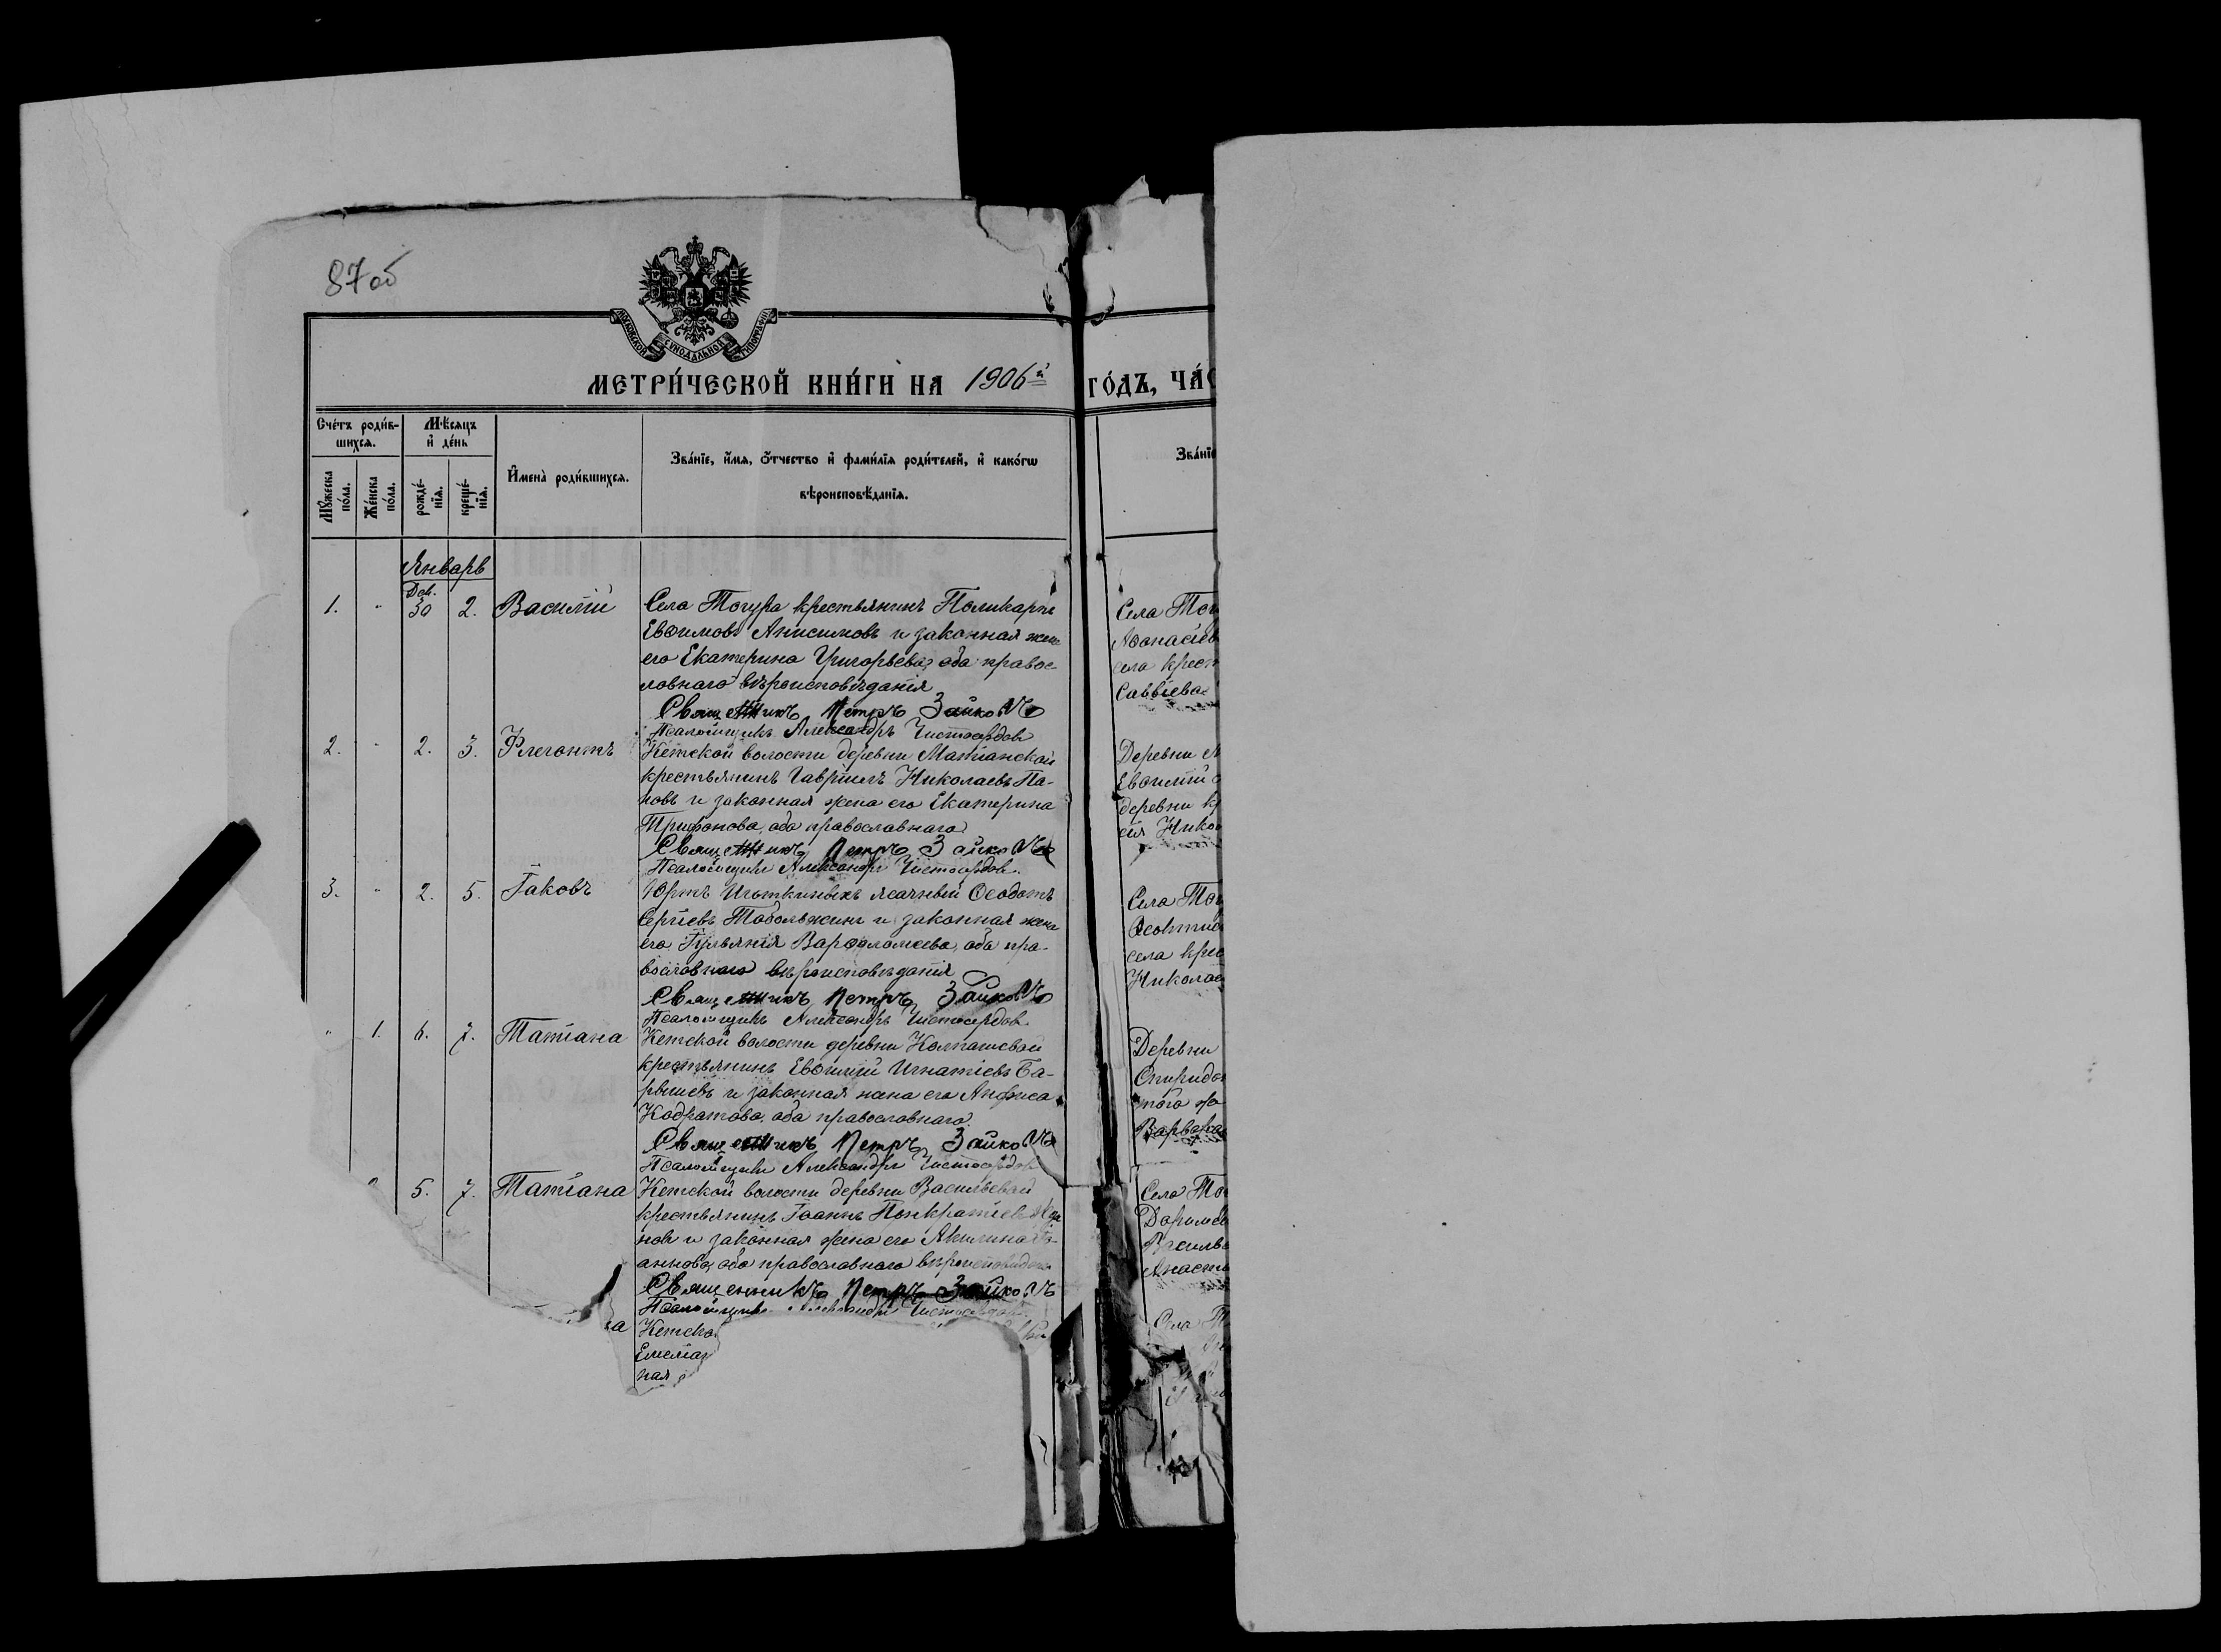 87 об
МОСКОВСКОЙ СѴНОДАЛЬНОЙ ТИПОГРАФІИ
МЕТРИ́ЧЕСКОЙ КНИ́ГИ НА 1906й ГО́ДЪ, ЧА́С
Сче́тъ роди́в-
шихсѧ.
Мѣ́сѧцъ
и҆ де́нь
Мꙋ́жеска
по́ла.
Же́нска
по́ла.
рожде́-
нїѧ.
креще́-
нїѧ.
И҆мена̀ роди́вшихсѧ.
Зва́нїе, и҆́мѧ, ѻ҆́тчество и҆ фами́лїѧ роди́телей, и҆ како́гѡ
вѣроисповѣ́данїѧ.
Зва́нїе
Январь
1. " Дек. 30 2. Василій
Села Тогура крестьянинъ Поликарпъ
Евѳимовъ Анисимовъ и законная жена
его Екатерина Григорьева, оба правос-
лавнаго вѣроисповѣданія
Священникъ Петръ Зайковъ
Псаломщикъ Александръ Чистосердов
2. " 2. 3. Флегонтъ
Кетской волости деревни Матіанской
крестьянинъ Гавріилъ Николаевъ Па-
новъ и законная жена его Екатерина
Трифонова, оба православнаго
Священникъ Петръ Зайковъ
Псаломщикъ Александръ Чистосердов.
3. " 2. 5. Іаковъ
Юртъ Иготкиныхъ ясачный Ѳеодотъ
Сергіевъ Тобольжинъ и законная жена
его Іуліанія Варѳоломеева, оба пра-
вославнаго вѣроисповѣданія
Священникъ Петръ Зайковъ
Псаломщикъ Александръ Чистосердов.
" 1. 6. 7. Татіана
Кетской волости деревни Колпашевой
крестьянинъ Евѳимій Игнатіевъ Ба-
рышевъ и законная жена его Анфиса
Кодратова, оба православнаго.
Священникъ Петръ Зайковъ
Псаломщикъ Александръ Чистосердов
5. 7. Татіана
Кетской волости деревни Васильевой
крестьянинъ Іоаннъ Панкратіевъ
новъ и законная жена его Акилина Іо-
аннова, оба православнаго вѣроисповѣдан.
Священникъ Петръ Зайковъ
Псаломщикъ Александръ Чистосердов.
а Кетско
Емеліан
ная
Села Тог
Аѳанасіев
села крест
Саввіева
Деревни
Евѳимій
деревни к
сія Нико
Села Тог
Ѳеокти
села крес
Николае
Деревни
Спиридон
того же
Варвара
Села То
Дорофе
Василье
Анаста
Села Т